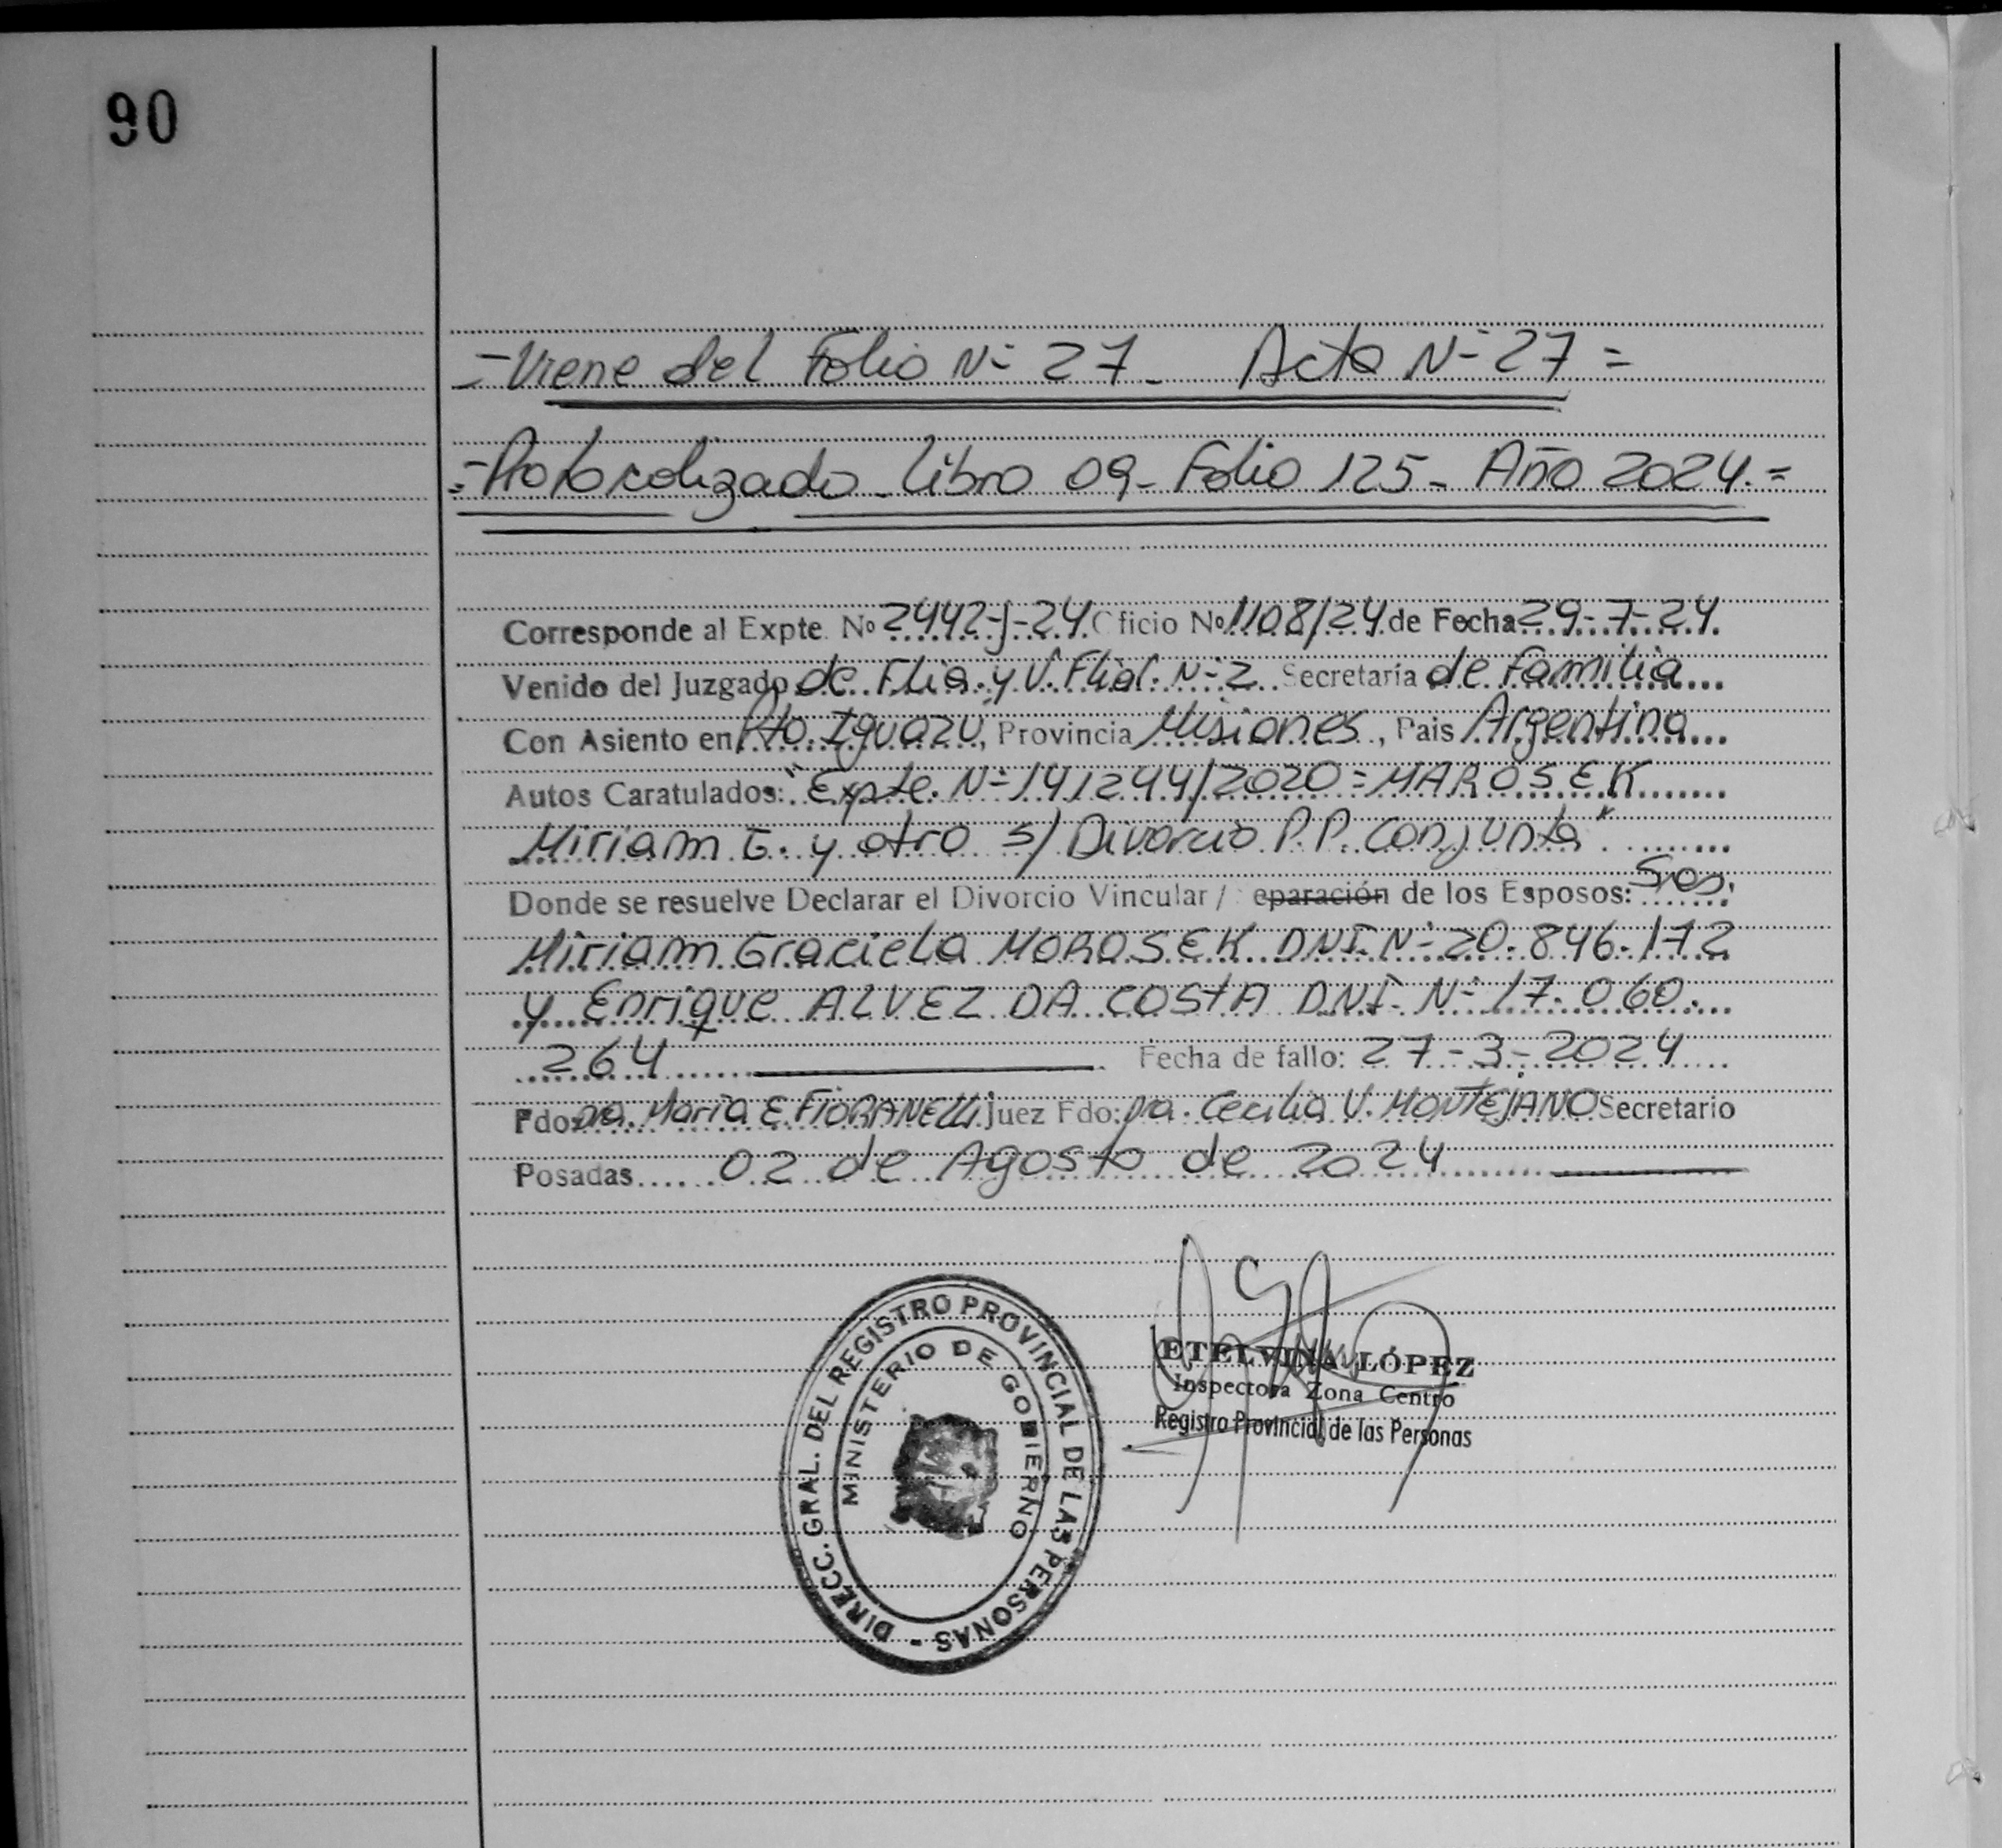 90
=Viene del Folio N- 27_ Acta N- 27=
=Protocolizado_Libro 09_Folio 125_ Año 2024.=
Corresponde al Expte. Nº 2442-J-24 Oficio Nº 1108/24 de Fecha 29-7-24.
Venido del Juzgado de Flia. y V. Flial. N-2 Secretaría de Familia...
Con Asiento en Pto. Iguazu, Provincia Misiones, Pais Argentina...
Autos Caratulados: "Expte. N-141244/2020=MAROSEK
Miriam G. y otro s/ Divorcio P.P. Conjunta"
Donde se resuelve Declarar el Divorcio Vincular / separación de los Esposos: Sres.
Miriam Graciela MOROSEK DNI. N- 20.846.172
y Enrique ALVEZ DA COSTA D.N.I. N- 17.060.
264 Fecha de fallo: 27-3-2024
Fdo: Dra. María E. FIORANELLI Juez Fdo: Dra. Cecilia V. MONTEJANO Secretario
Posadas 02 de Agosto de 2024
DIRECC. GRAL. DEL REGISTRO PROVINCIAL DE LAS PERSONAS -
MINISTERIO DE GOBIERNO
ETELVINA LÓPEZ
Inspectora Zona Centro
Registro Provincial de las Personas